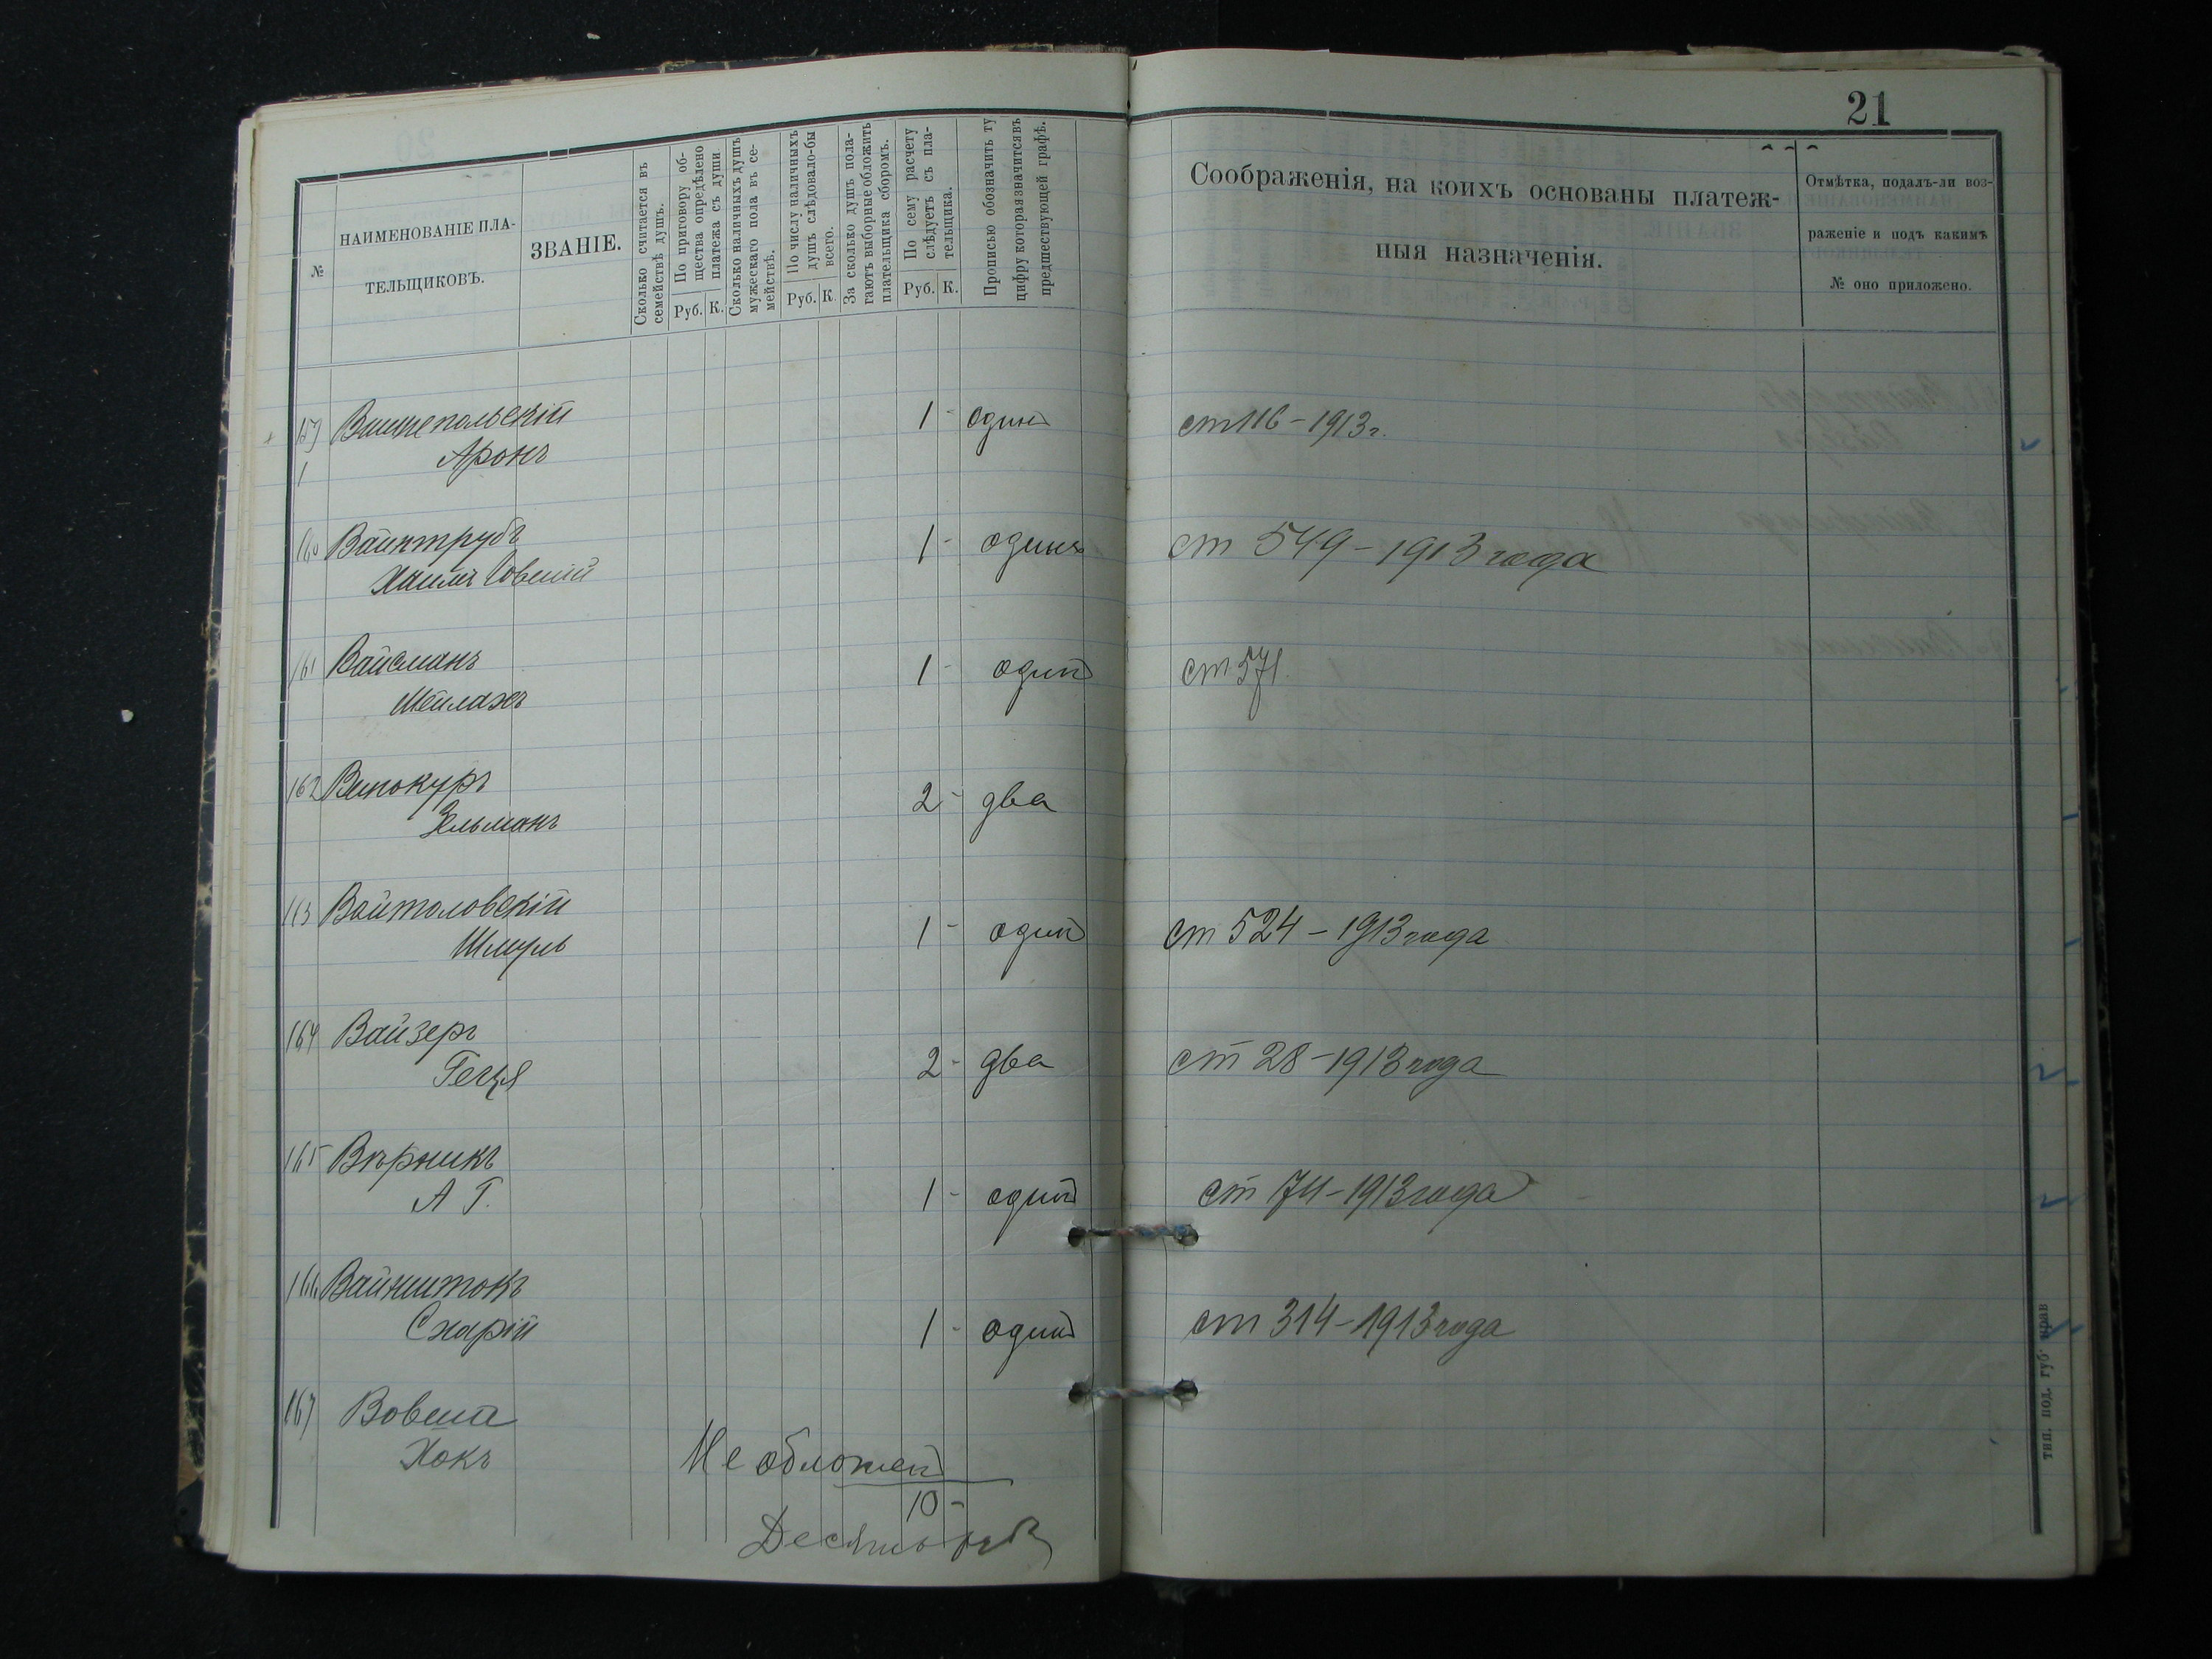 21
№
НАИМЕНОВАНІЕ ПЛА-
ТЕЛЬЩИКОВЪ.
ЗВАНІЕ.
Сколько считается въ
семействѣ душъ.
По приговору об-
щества опредѣлено
платежа съ души
Руб. К.
Сколько наличныхъ душъ
мужескаго пола въ се-
мействѣ.
По числу наличныхъ
душъ слѣдовало-бы
всего.
Руб. К.
За сколько душъ пола-
гаютъ выборные обложить
плательщика сборомъ.
По сему расчету
слѣдуетъ съ пла-
тельщика.
Руб. К.
Прописью обозначить ту
цифру которая значится въ
предшествующей графѣ.
Соображенія, на коихъ основаны платеж-
ныя назначенія.
Отмѣтка, подалъ-ли воз-
раженіе и подъ какимъ
№ оно приложено.
Вишнепольскій 1 - одинъ ст 116 - 1913 г.
Аронъ
160 Вайнтрубъ 1 - одинъ ст 549 - 1913 года
Хаимъ
161 Вайсманъ 1 - одинъ ст 571
Мейлахъ
162 Винокуръ 2 - два
Зельманъ
163 Войтоловскій 1 - одинъ ст 524 - 1913 года
Шмуль
164 Вайзеръ 2 - два ст 28 - 1913 года
Геця
165 Вѣрникъ
А Г. 1 - одинъ ст 74 - 1913 года
166 Вайнштокъ
Схарій 1 - одинъ ст 314 - 1913 года
167 Вовша
Хокъ Не обложен
10 -
Десять руб
тип. под. губ. прав